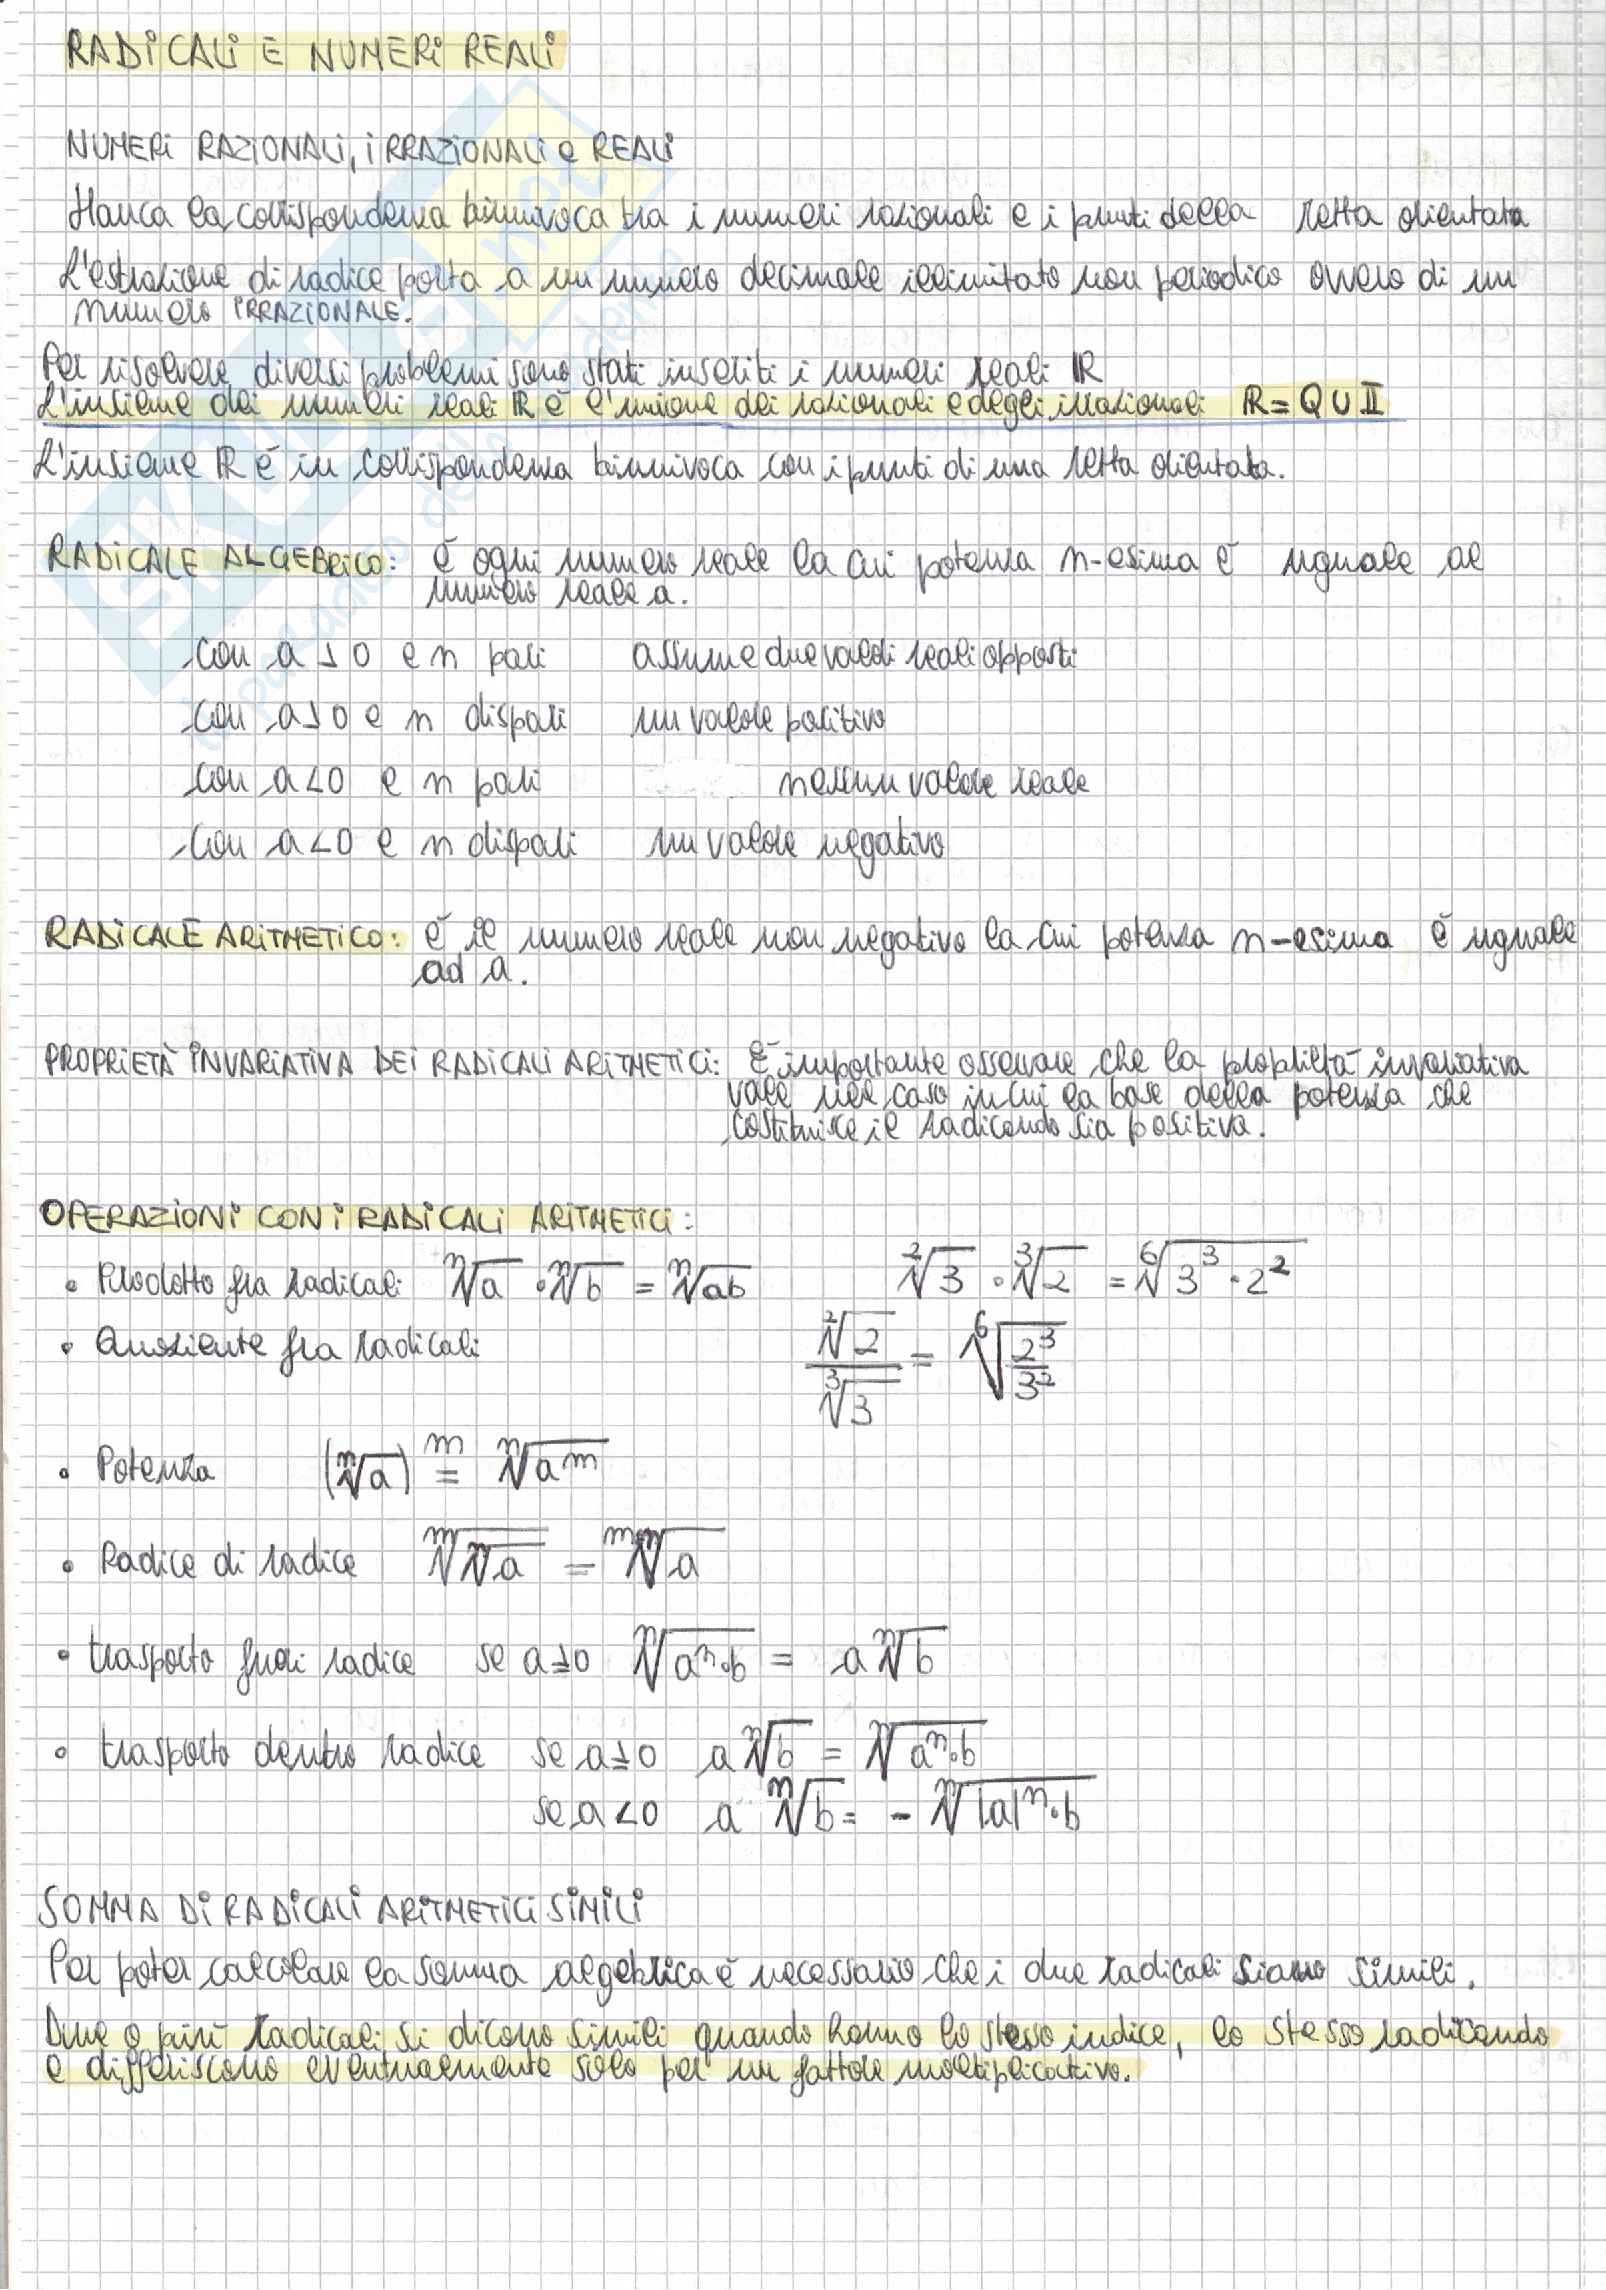 RADICALI E NUMERI REALI
NUMERI RAZIONALI, IRRAZIONALI e REALI
Manca la corrispondenza biunivoca tra i numeri razionali e i punti della retta orientata
L'estrazione di radice porta a un numero decimale illimitato non periodico ovvero di un
numero IRRAZIONALE.
Per risolvere diversi problemi sono stati inseriti i numeri reali ℝ
L'insieme dei numeri reali ℝ è l'unione dei razionali e degli irrazionali ℝ = Q ∪ 𝕀
L'insieme ℝ è in corrispondenza biunivoca con i punti di una retta orientata.
RADICALE ALGEBRICO: è ogni numero reale la cui potenza n-esima è uguale al
numero reale a.
con a > 0 e n pari assume due valori reali opposti
con a > 0 e n dispari un valore positivo
con a < 0 e n pari nessun valore reale
con a < 0 e n dispari un valore negativo
RADICALE ARITMETICO: è il numero reale non negativo la cui potenza n-esima è uguale
ad a.
PROPRIETÀ INVARIATIVA DEI RADICALI ARITMETICI: È importante osservare che la proprietà invariativa
vale nel caso in cui la base della potenza che
costituisce il radicando sia positiva.
OPERAZIONI CON I RADICALI ARITMETICI:
• Prodotto fra radicali ⁿ√a · ⁿ√b = ⁿ√ab ²√3 · ³√2 = ⁶√(3³ · 2²)
• Quoziente fra radicali ²√2 / ³√3 = ⁶√(2³/3²)
• Potenza (ⁿ√a)ᵐ = ⁿ√aᵐ
• Radice di radice ᵐ√ⁿ√a = ᵐⁿ√a
• trasporto fuori radice se a ≥ 0 ⁿ√(aⁿ·b) = a ⁿ√b
• trasporto dentro radice se a ≥ 0 a ⁿ√b = ⁿ√(aⁿ·b)
se a < 0 a ⁿ√b = - ⁿ√(|a|ⁿ·b)
SOMMA DI RADICALI ARITMETICI SIMILI
Per poter calcolare la somma algebrica è necessario che i due radicali siano simili.
Due o più radicali si dicono simili quando hanno lo stesso indice, lo stesso radicando
e differiscono eventualmente solo per un fattore moltiplicativo.